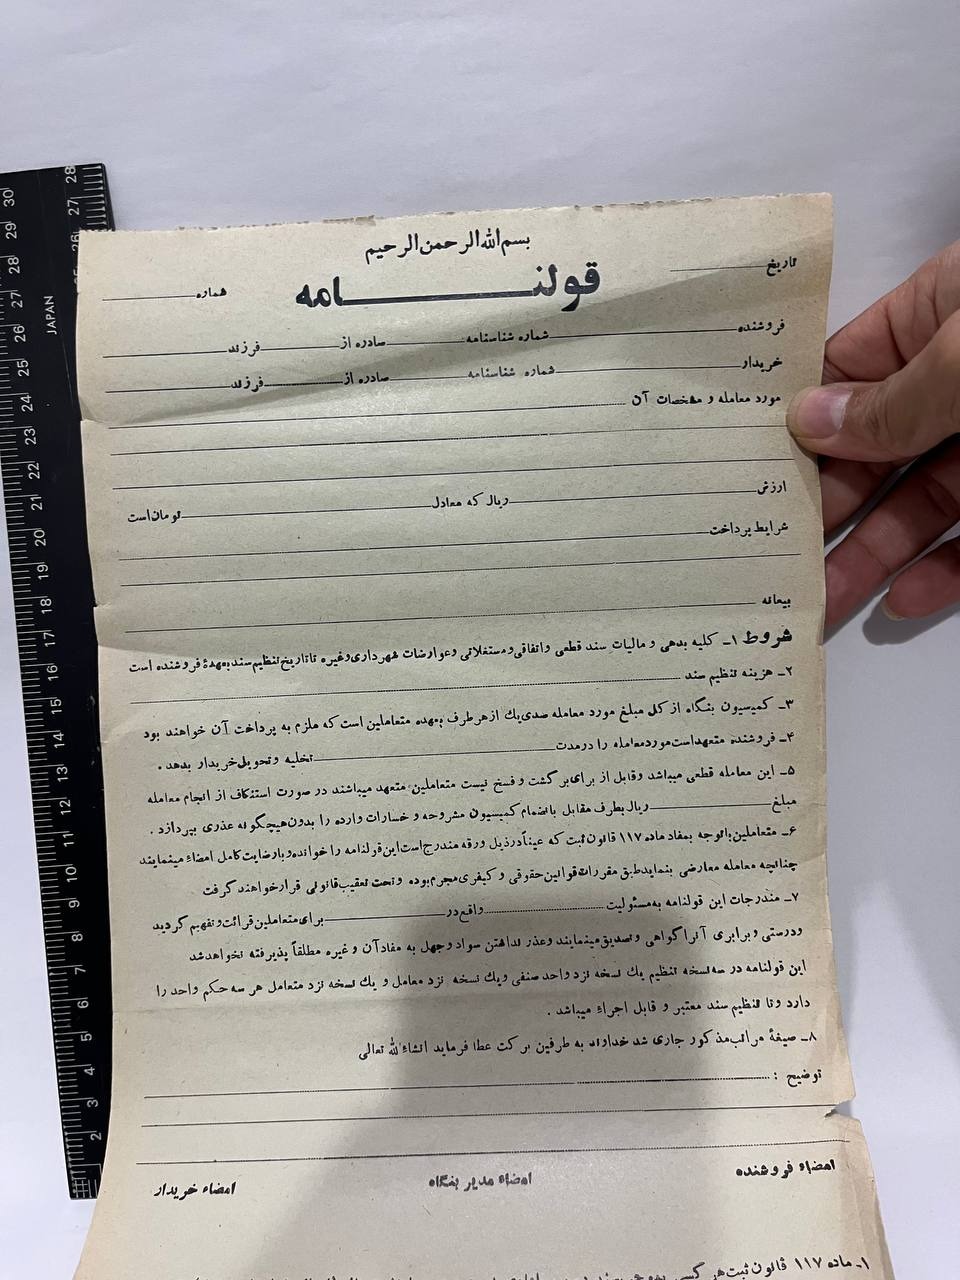 بسم الله الرحمن الرحیم
تاریخ
قولنامه
شماره
فروشنده شماره شناسنامه صادره از فرزند
خریدار شماره شناسنامه صادره از فرزند
مورد معامله و مشخصات آن
ارزش ریال که معادل تومان است
شرایط پرداخت
بیعانه
شروط ۱ـ کلیه بدهی و مالیات سند قطعی و اتفاقی و مستغلاتی و عوارضات شهرداری و غیره تا تاریخ تنظیم سند بعهدۀ فروشنده است
۲ـ هزینه تنظیم سند
۳ـ کمیسیون بنگاه از کل مبلغ مورد معامله صدی یك از هر طرف بعهده متعاملین است که ملزم به پرداخت آن خواهند بود
۴ـ فروشنده متعهد است مورد معامله را در مدت تخلیه و تحویل خریدار بدهد .
۵ـ این معامله قطعی میباشد و قابل از برای برگشت و فسخ نیست متعاملین متعهد میباشند در صورت استنکاف از انجام معامله
مبلغ ریال بطرف مقابل بانضمام کمیسیون مشروحه و خسارات وارده را بدون هیچگونه عذری بپردازد .
۶ـ متعاملین باتوجه بمفاد ماده ۱۱۷ قانون ثبت که عیناً در ذیل ورقه مندرج است این قولنامه را خوانده و با رضایت کامل امضاء مینمایند
چنانچه معامله معارضی بنماید طبق مقررات قوانین حقوقی و کیفری مجرم بوده و تحت تعقیب قانونی قرار خواهند گرفت
۷ـ مندرجات این قولنامه به مسئولیت واقع در برای متعاملین قرائت و تفهیم گردید
ودرستی و برابری آنرا گواهی و تصدیق مینمایند و عذر نداشتن سواد و جهل به مفاد آن و غیره مطلقاً پذیرفته نخواهد شد
این قولنامه در سه نسخه تنظیم یك نسخه نزد واحد صنفی و یك نسخه نزد معامل و یك نسخه نزد متعامل هر سه حکم واحد را
دارد و تا تنظیم سند معتبر و قابل اجراء میباشد .
۸ـ صیغۀ مراتب مذکور جاری شد خداوند به طرفین برکت عطا فرماید انشاءالله تعالی
توضیح :
امضاء فروشنده امضاء مدیر بنگاه امضاء خریدار
۱ـ ماده ۱۱۷ قانون ثبت هر کسی